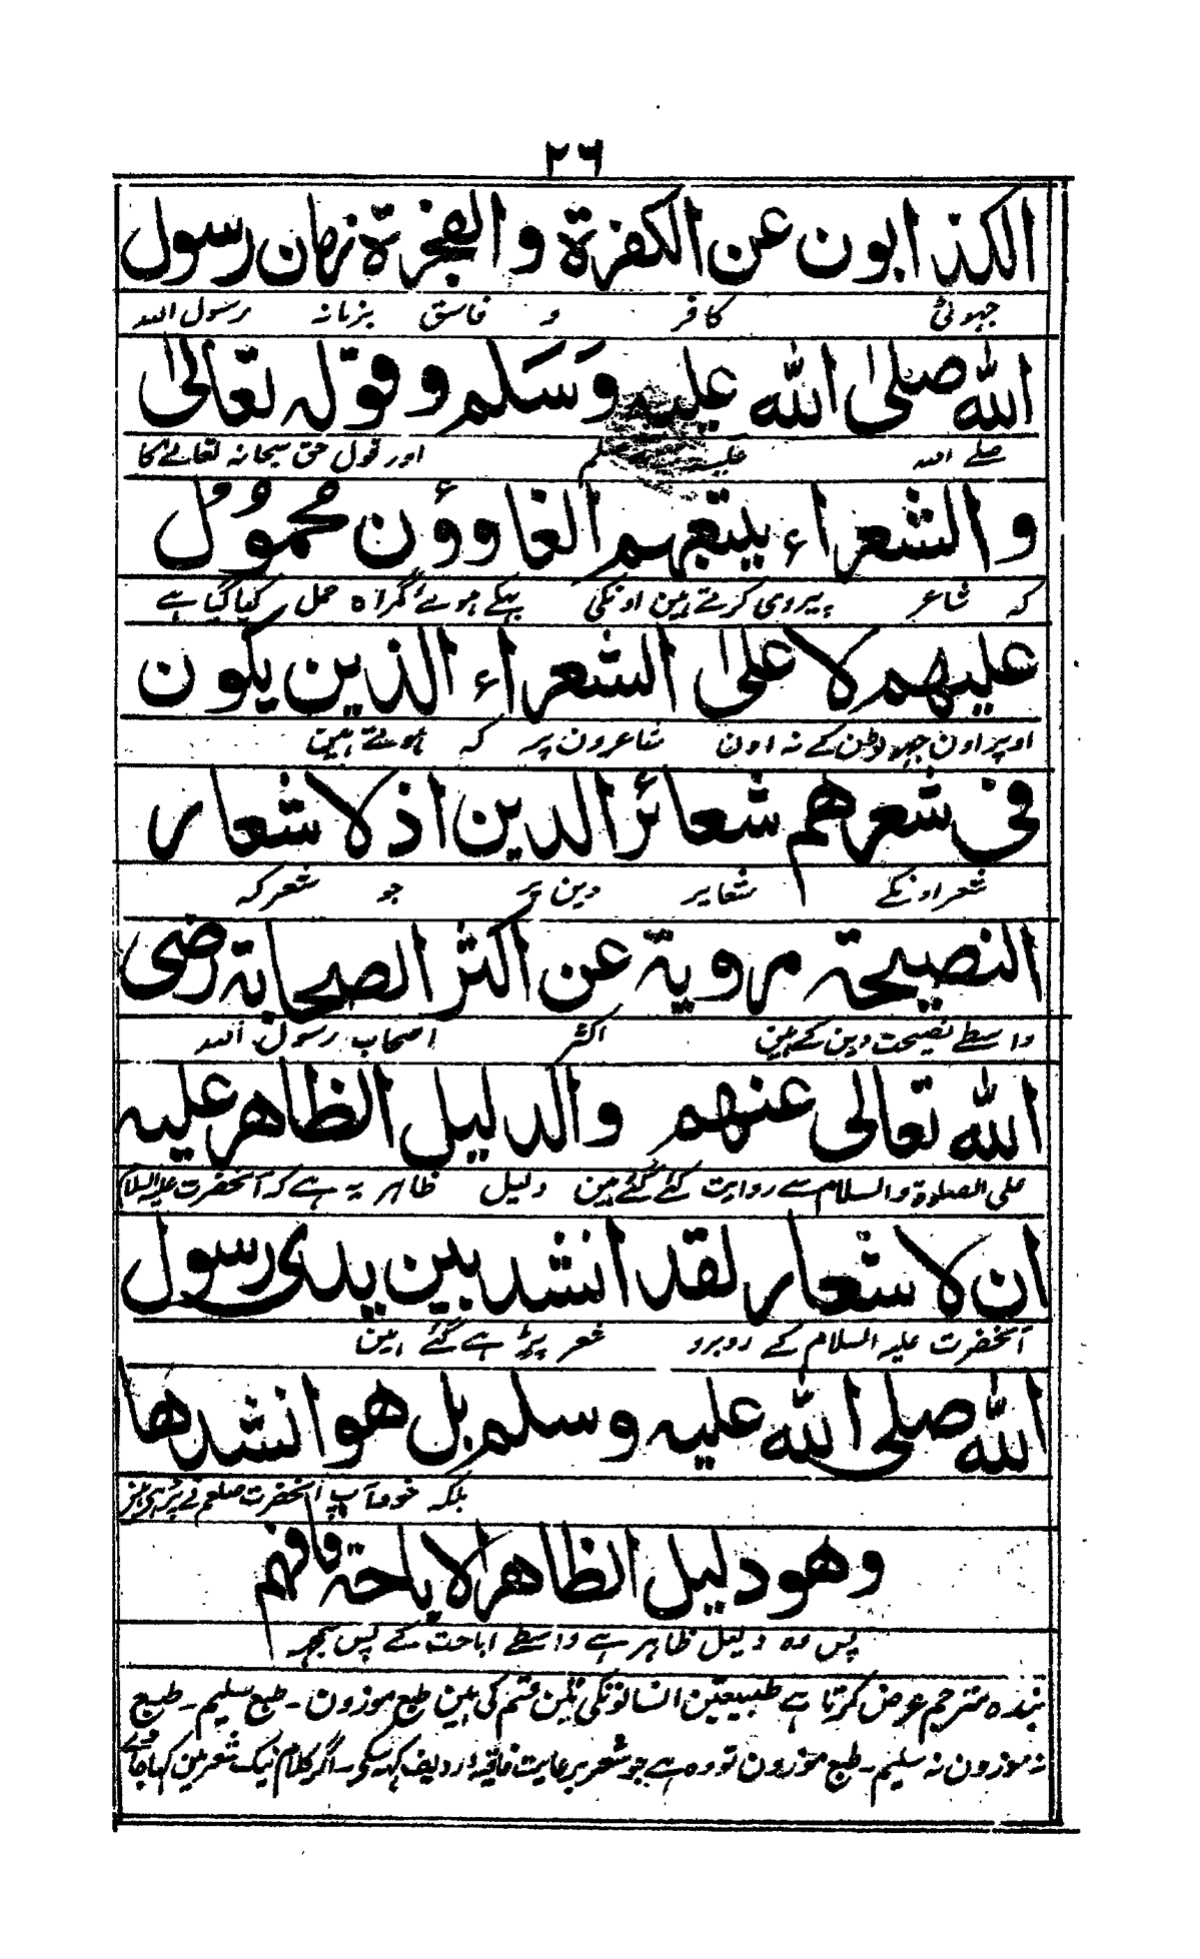 ٢٦
الكذابون عن الكفرة والفجرة زمان رسول
جہوٹی کافر و فاسق بزمانہ رسول اللہ
الله صلى الله عليه وسلم وقوله تعالى
صلے اللہ علیہ وسلم اور قول حق سبحانہ تعالےٰ کا
والشعراء يتبعهم الغاوٗون محمول
کہ شاعر پیروی کرتے ہین اونکی بہکے ہوے گمراہ حمل کیا گیا ہے
عليهم لا على الشعراء الذين يكون
اوپر اون جہوٹون کے نہ اون شاعرون پر کہ ہوتے ہین
في شعرهم شعائر الدين اذ لا شعار
شعر اونکے شعایر دین پر جو شعر کہ
النصيحة مروية عن اكثر الصحابة رضى
واسطے نصیحت دین کے ہین اکثر اصحاب رسول اللہ
الله تعالى عنهم والدليل الظاهر عليه
صلی الصلوۃ والسلام سے روایت کئے گئے ہین دلیل ظاہر یہ ہے کہ آنحضرت علیہ السلام
ان لا شعار لقد انشد بين يدى رسول
آنحضرت علیہ السلام کے روبرو شعر پڑہے گئے ہین
الله صلى الله عليه وسلم بل هو انشدها
بلکہ خود آپ آنحضرت صلعم نے پڑہی ہین
وهو دليل الظاهر الاباحة فافهم
پس وہ دلیل ظاہر ہے واسطے اباحت کے پس سمجہہ
بندہ مترجم عرض کرتا ہے طبیعتین انسانونکی تین قسم کی ہین طبع موزون۔ طبع سلیم۔ طبع
نہ موزون نہ سلیم۔ طبع موزون تو وہ ہے جو شعر برعایت قافیہ و ردیف کہہ سکے۔ اگر کلام نیک شعر مین کہا جاے